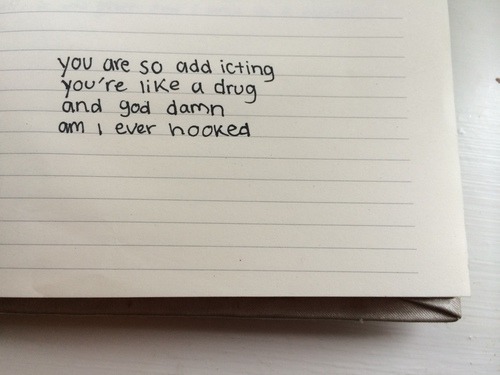 you are so add icting
you're like a drug
and god damn
am i ever hooked